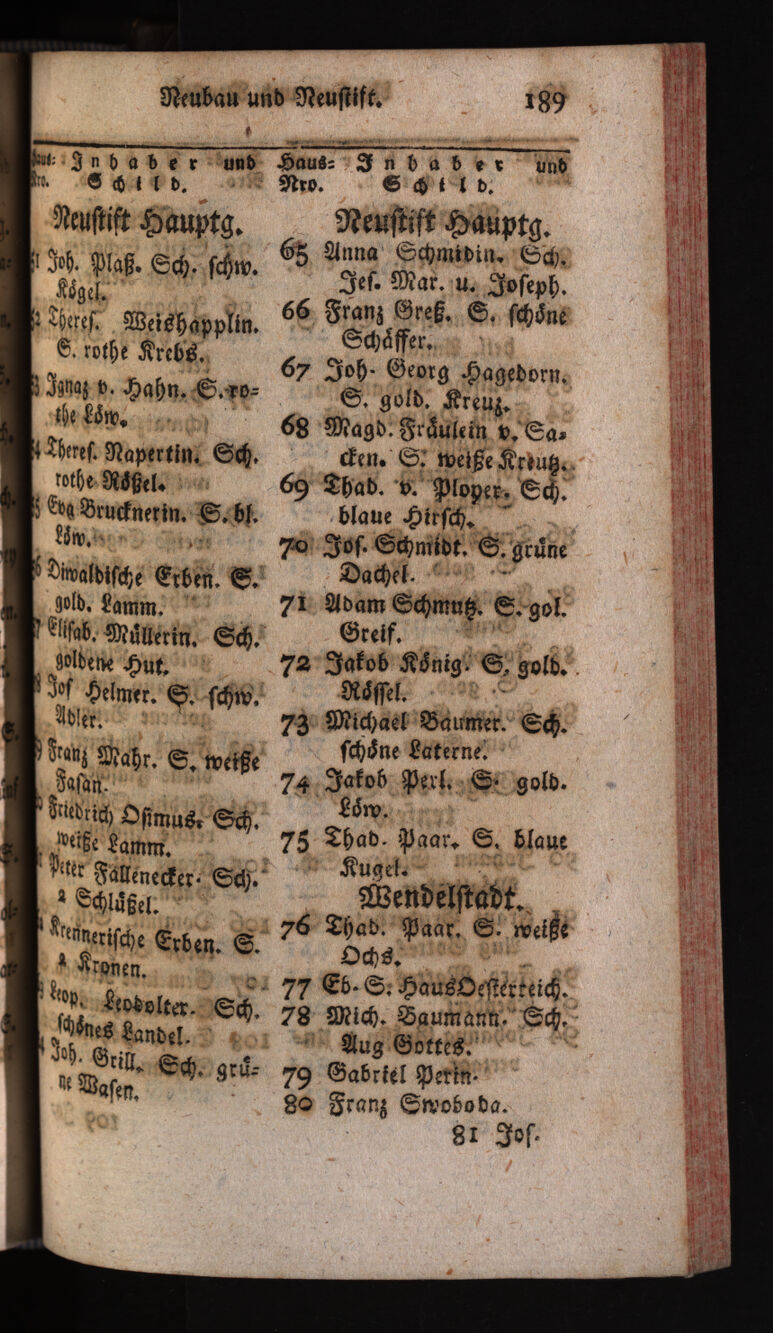 Neubau und Neustift. 189
Inhaber und
Schild.
Neustift Hauptg.
1 Joh. Plaß. Sch. schw.
Kögel.
2 Theres. Weishapplin.
S. rothe Krebs.
3 Ignaz v. Hahn. S. ro=
the Löw.
4 Theres. Napertin. Sch.
rothe Rößel.
5 Eva Brucknerin. S. bl.
Löw.
6 Diwaldische Erben. S.
gold. Lamm.
7 Elisab. Müllerin. Sch.
goldene Hut.
8 Jos Helmer. S. schw.
Adler.
9 Franz Mahr. S. weiße
Fasan.
Friedrich Osimus. Sch.
weiße Lamm.
1 Peter Fällenecker. Sch.
2 Schlüßel.
Krennerische Erben. S.
2 Kronen.
3 Leop. Leobolter. Sch.
schönes Landel.
4 Joh. Grill. Sch. grü=
ne Wasen.
Haus= Inhaber und
Nro. Schild.
Neustift Hauptg.
65 Anna Schmidin. Sch.
Jes. Mar. u. Joseph.
66 Franz Greß. S. schöne
Schäffer.
67 Joh. Georg Hagedorn.
S. gold. Kreuz.
68 Magd. Fräulein v. Sa=
cken. S. weiße Kreutz.
69 Thad. v. Ploper. Sch.
blaue Hirsch.
70 Jos. Schmidt. S. grüne
Dachel.
71 Adam Schmutz. S. gol.
Greif.
72 Jakob König. S. gold.
Rössel.
73 Michael Baumer. Sch.
schöne Laterne.
74 Jakob Perl. S. gold.
Löw.
75 Thad. Paar. S. blaue
Kugel.
Wendelstadt.
76 Thad. Paar. S. weiße
Ochs.
77 Eb. S. Haus Oesterreich.
78 Mich. Baumann. Sch.
Aug Gottes.
79 Gabriel Perin.
80 Franz Swoboda.
81 Jos.